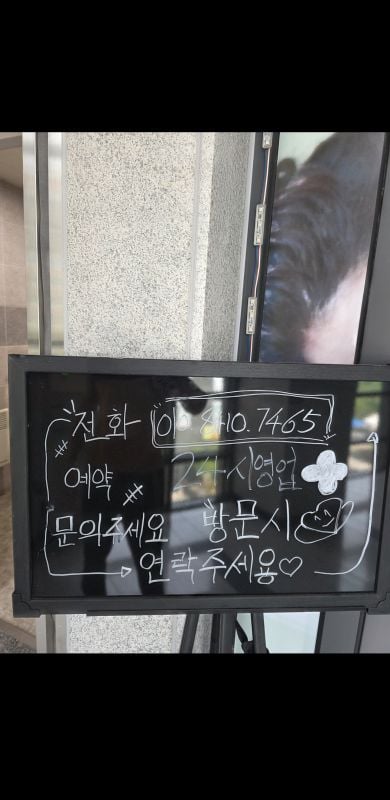 전화 010.8410.7465
예약 24시영업
문의주세요 방문시
연락주세요♡